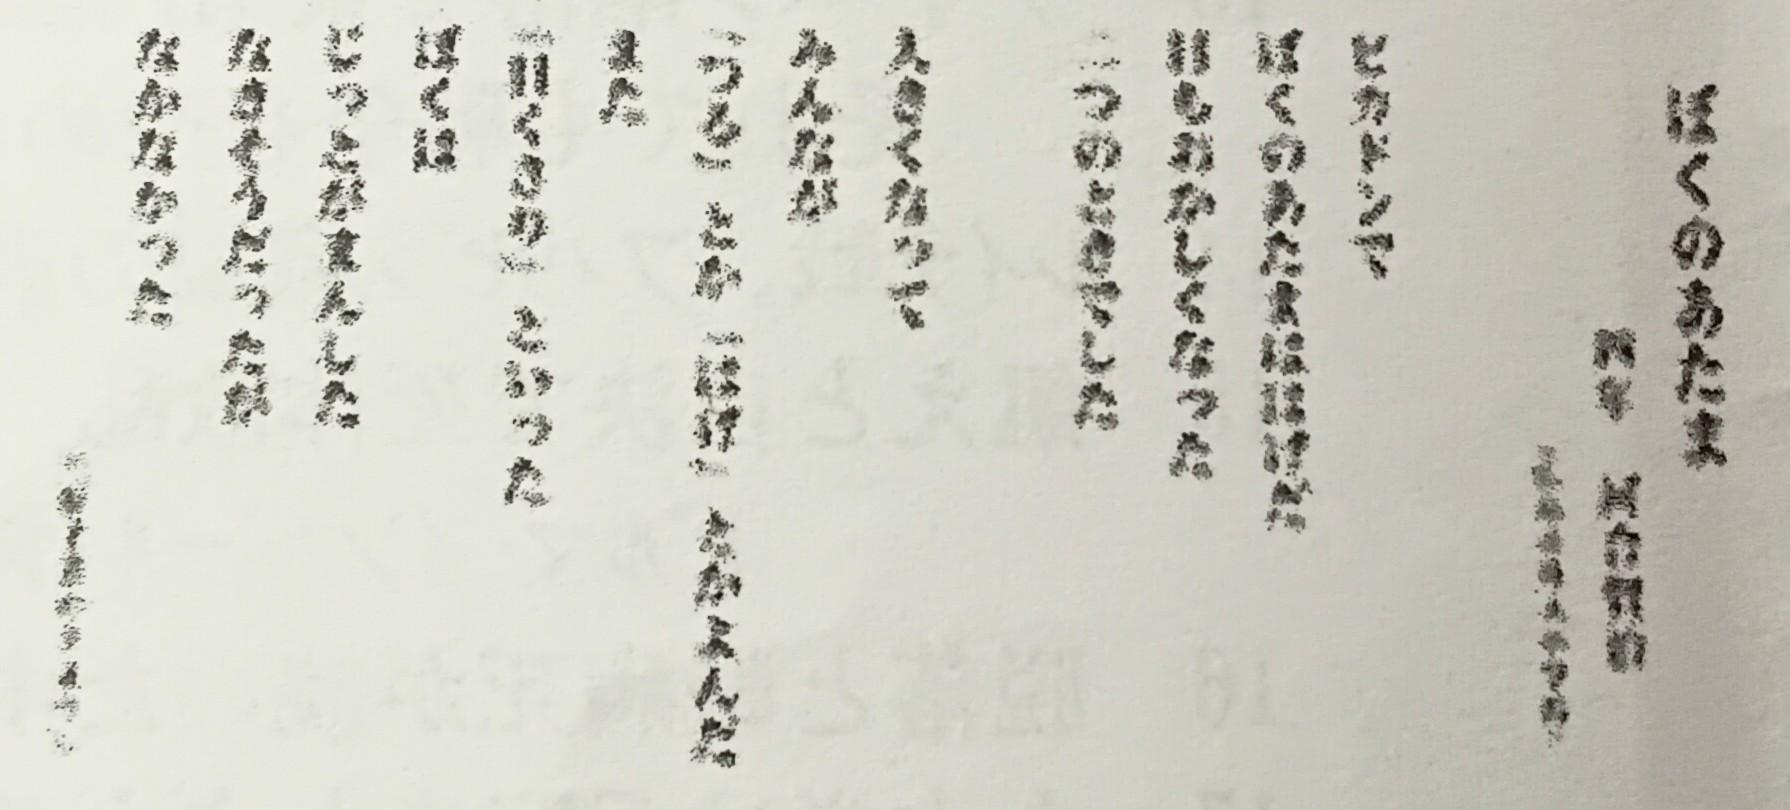 ぼくのあたま
ピカドンで
ぼくのあたまははげた
目もおかしくなった
二つのときでした
大きくなって
みんなが
「つる」とか「はげ」とかよんだ
また
「目くさり」といった
ぼくは
じっとがまんした
なきそうだったが
なかなかった